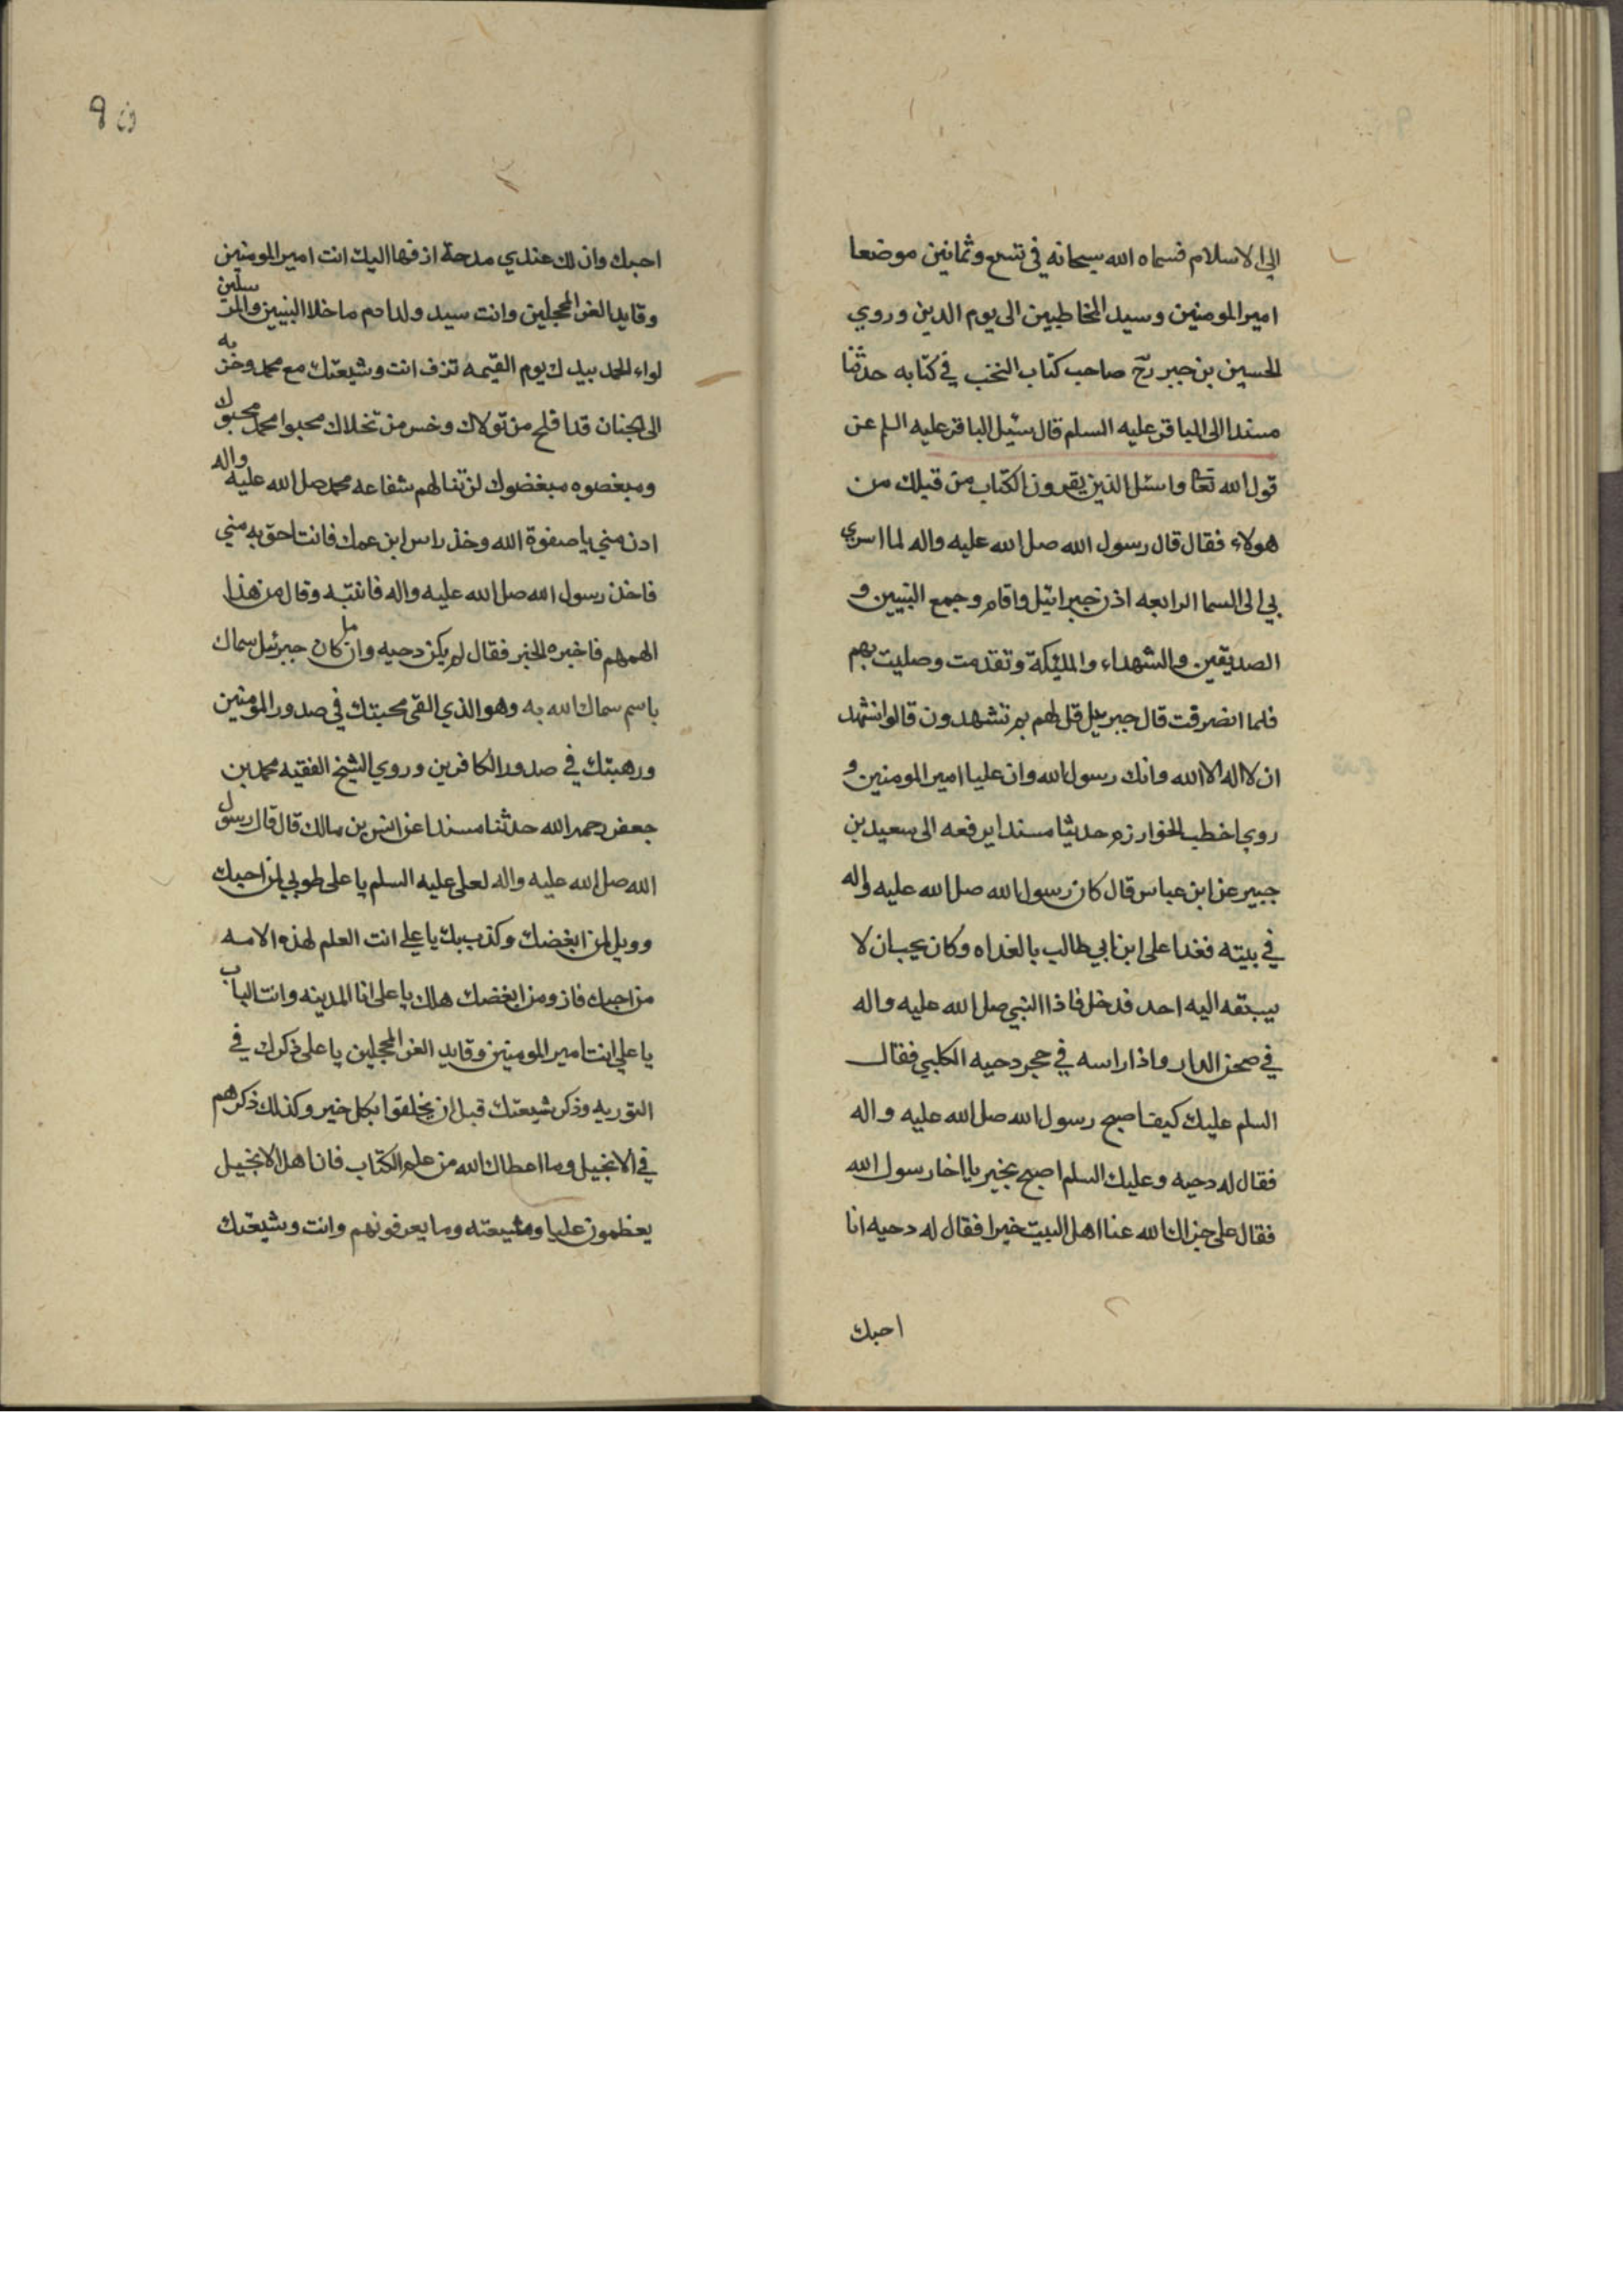 الى الاسلام فسماه الله سبحانه في تسع وثمانين موضعا
امير المومنين وسيد المخاطبين الى يوم الدين وروي
الحسين بن جبر رح صاحب كتاب النخب في كتابه حدثنا
مسندا الى الباقر عليه السلم قال سئيل الباقر عليه السلم عن
قول الله تعا واسئل الذين يقرون الكتاب من قبلك من
هولاء فقال قال رسول الله صل الله عليه واله لما اسري
بي الى السما الرابعه اذن جبرائيل واقام وجمع النبيين و
الصديقين والشهداء والمليكة وتقدمت وصليت بهم
فلما انصرفت قال جبريل قل لهم بم تشهدون قالوا نشهد
ان لا اله الا الله وانك رسول الله وان عليا امير المومنين و
روي اخطب الخوارزم حديثا مسندا يرفعه الى سعيد بن
جبير عن ابن عباس قال كان رسول الله صل الله عليه واله
في بيته فغدا على ابن ابي طالب بالغداه وكان يحب ان لا
يسبقه اليه احد فدخل فاذا النبي صل الله عليه واله
في صحن الدار واذا راسه في حجر دحيه الكلبي فقال
السلم عليك كيف اصبح رسول الله صل الله عليه واله
فقال له دحيه وعليك السلم اصبح بخير يا اخا رسول الله
فقال على جزاك الله عنا اهل البيت خيرا فقال له دحيه انا
احبك
ون 9
احبك وان لك عندي مدحة ازفها اليك انت امير المومنين
وقايد الغر المحجلين وانت سيد ولد ادم ما خلا النبيين والمرسلين
لواء الحمد بيدك يوم القيمه تزف انت وشيعتك مع محمد وحزبه
الى الجنان قد افلح من تولاك وخسر من تخلاك محبوا محمد محبوك
ومبغصوه مبغضوك لن تنالهم شفاعه محمد صل الله عليه واله
ادن مني يا صفوة الله وخذ راس ابن عمك فانت احق به مني
فاخذ رسول الله صل الله عليه واله فانتبه وقال من هذا
الهمهم فاخبره الخبر فقال لم يكن دحيه وانما كان جبرئيل سماك
باسم سماك الله به وهو الذي القى محبتك في صدور المومنين
ورهبتك في صدور الكافرين وروي الشيخ الفقيه محمد بن
جعفر رحمه الله حدثنا مسندا عن انس بن مالك قال قال رسول
الله صل الله عليه واله لعلى عليه السلم يا على طوبي لمن احبك
وويل لمن ابغضك وكذب بك يا علي انت العلم لهذه الامه
من احبك فاز ومن ابغضك هلك يا على انا المدينه وانت الباب
يا علي انت امير المومنين وقايد الغر المحجلين يا على ذكرك في
التوريه وذكر شيعتك قبل ان يخلقوا بكل خير وكذلك ذكرهم
في الانجيل وما اعطاك الله من علم الكتاب فان اهل الانجيل
يعظمون عليا وشيعته وما يعرفونهم وانت وشيعتك